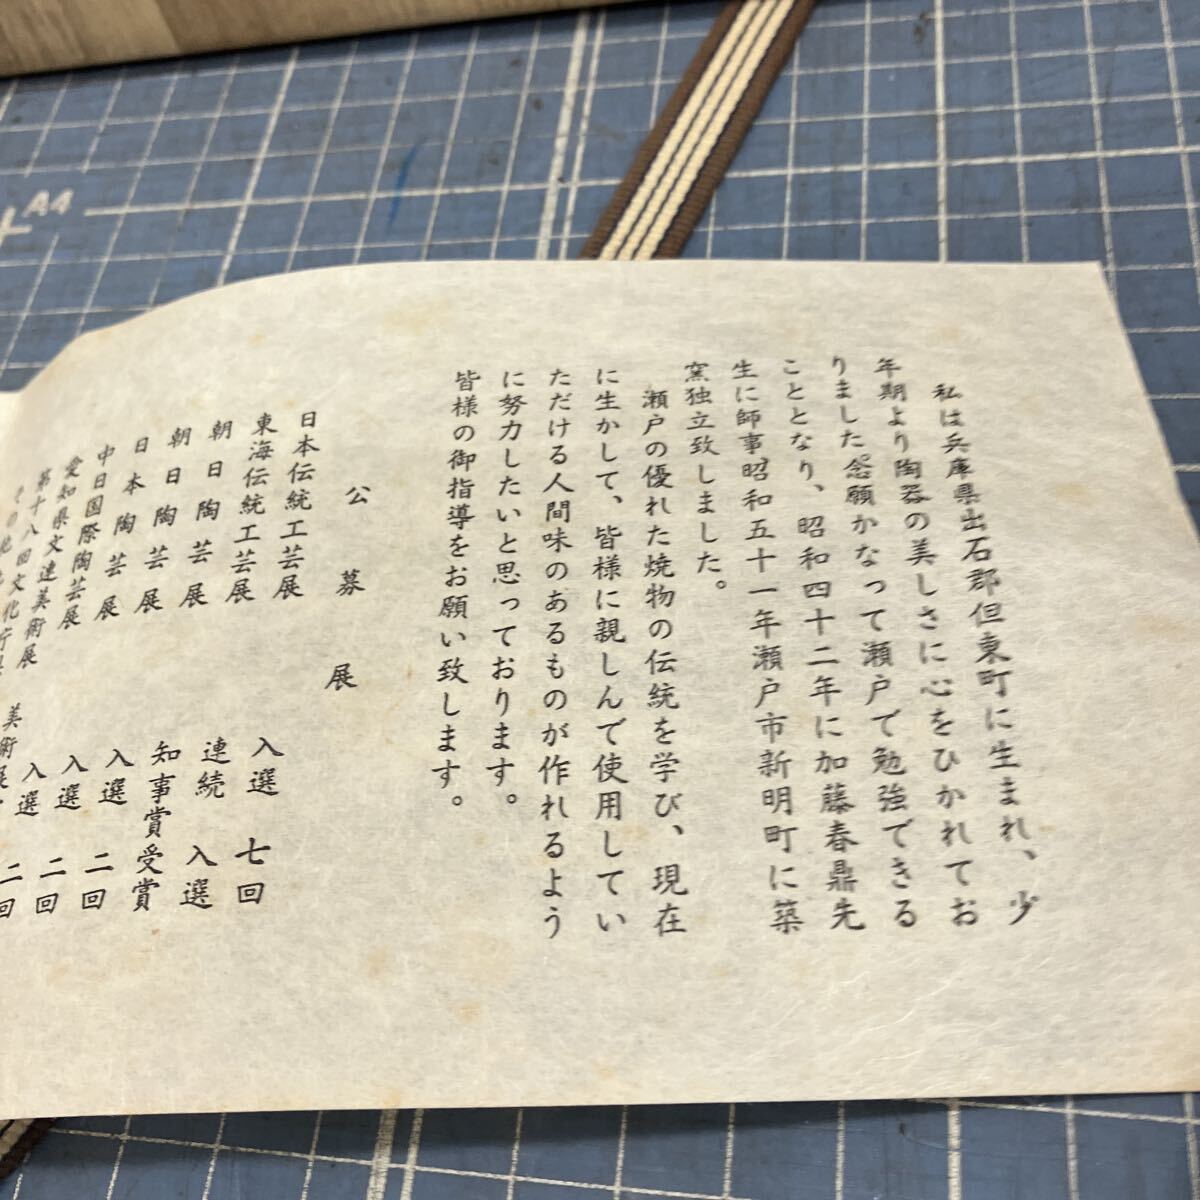 私は兵庫県出石郡但東町に生まれ、少
年期より陶器の美しさに心をひかれてお
りました。念願かなって瀬戸で勉強できる
こととなり、昭和四十二年に加藤春鼎先
生に師事昭和五十一年瀬戸市新明町に築
窯独立致しました。
瀬戸の優れた焼物の伝統を学び、現在
に生かして、皆様に親しんで使用してい
ただける人間味のあるものが作れるよう
に努力したいと思っております。
皆様の御指導をお願い致します。
公募展
日本伝統工芸展 入選 七回
東海伝統工芸展 連続 入選
朝日陶芸展 知事賞受賞
朝日陶芸展 入選 二回
日本陶芸展 入選 二回
中日国際陶芸展 入選 二回
愛知県文連美術展
第十八回文化庁 美術展
その他
A4